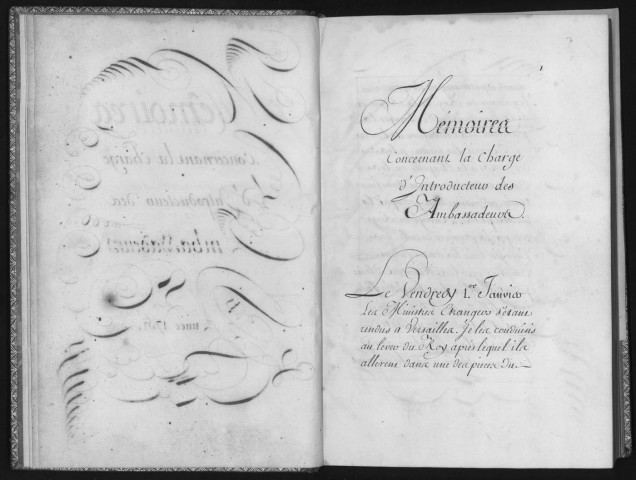 Mémoires
Concernant la Charge
d'Introducteur des
Ambassadeurs.
Le Vendredy 1.er Janvier
Les Ministres Etrangers s'étant
rendus a Versailles. Je les conduisis
au lever du Roy apres lequel ils
allerent dans une des pieces du